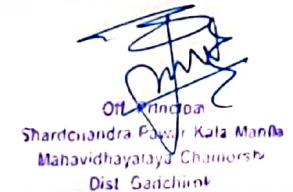 Principal
Shardchandra Pawar Kala Mahila
Mahavidhayalaya Chamorshi
Dist Gadchiroli